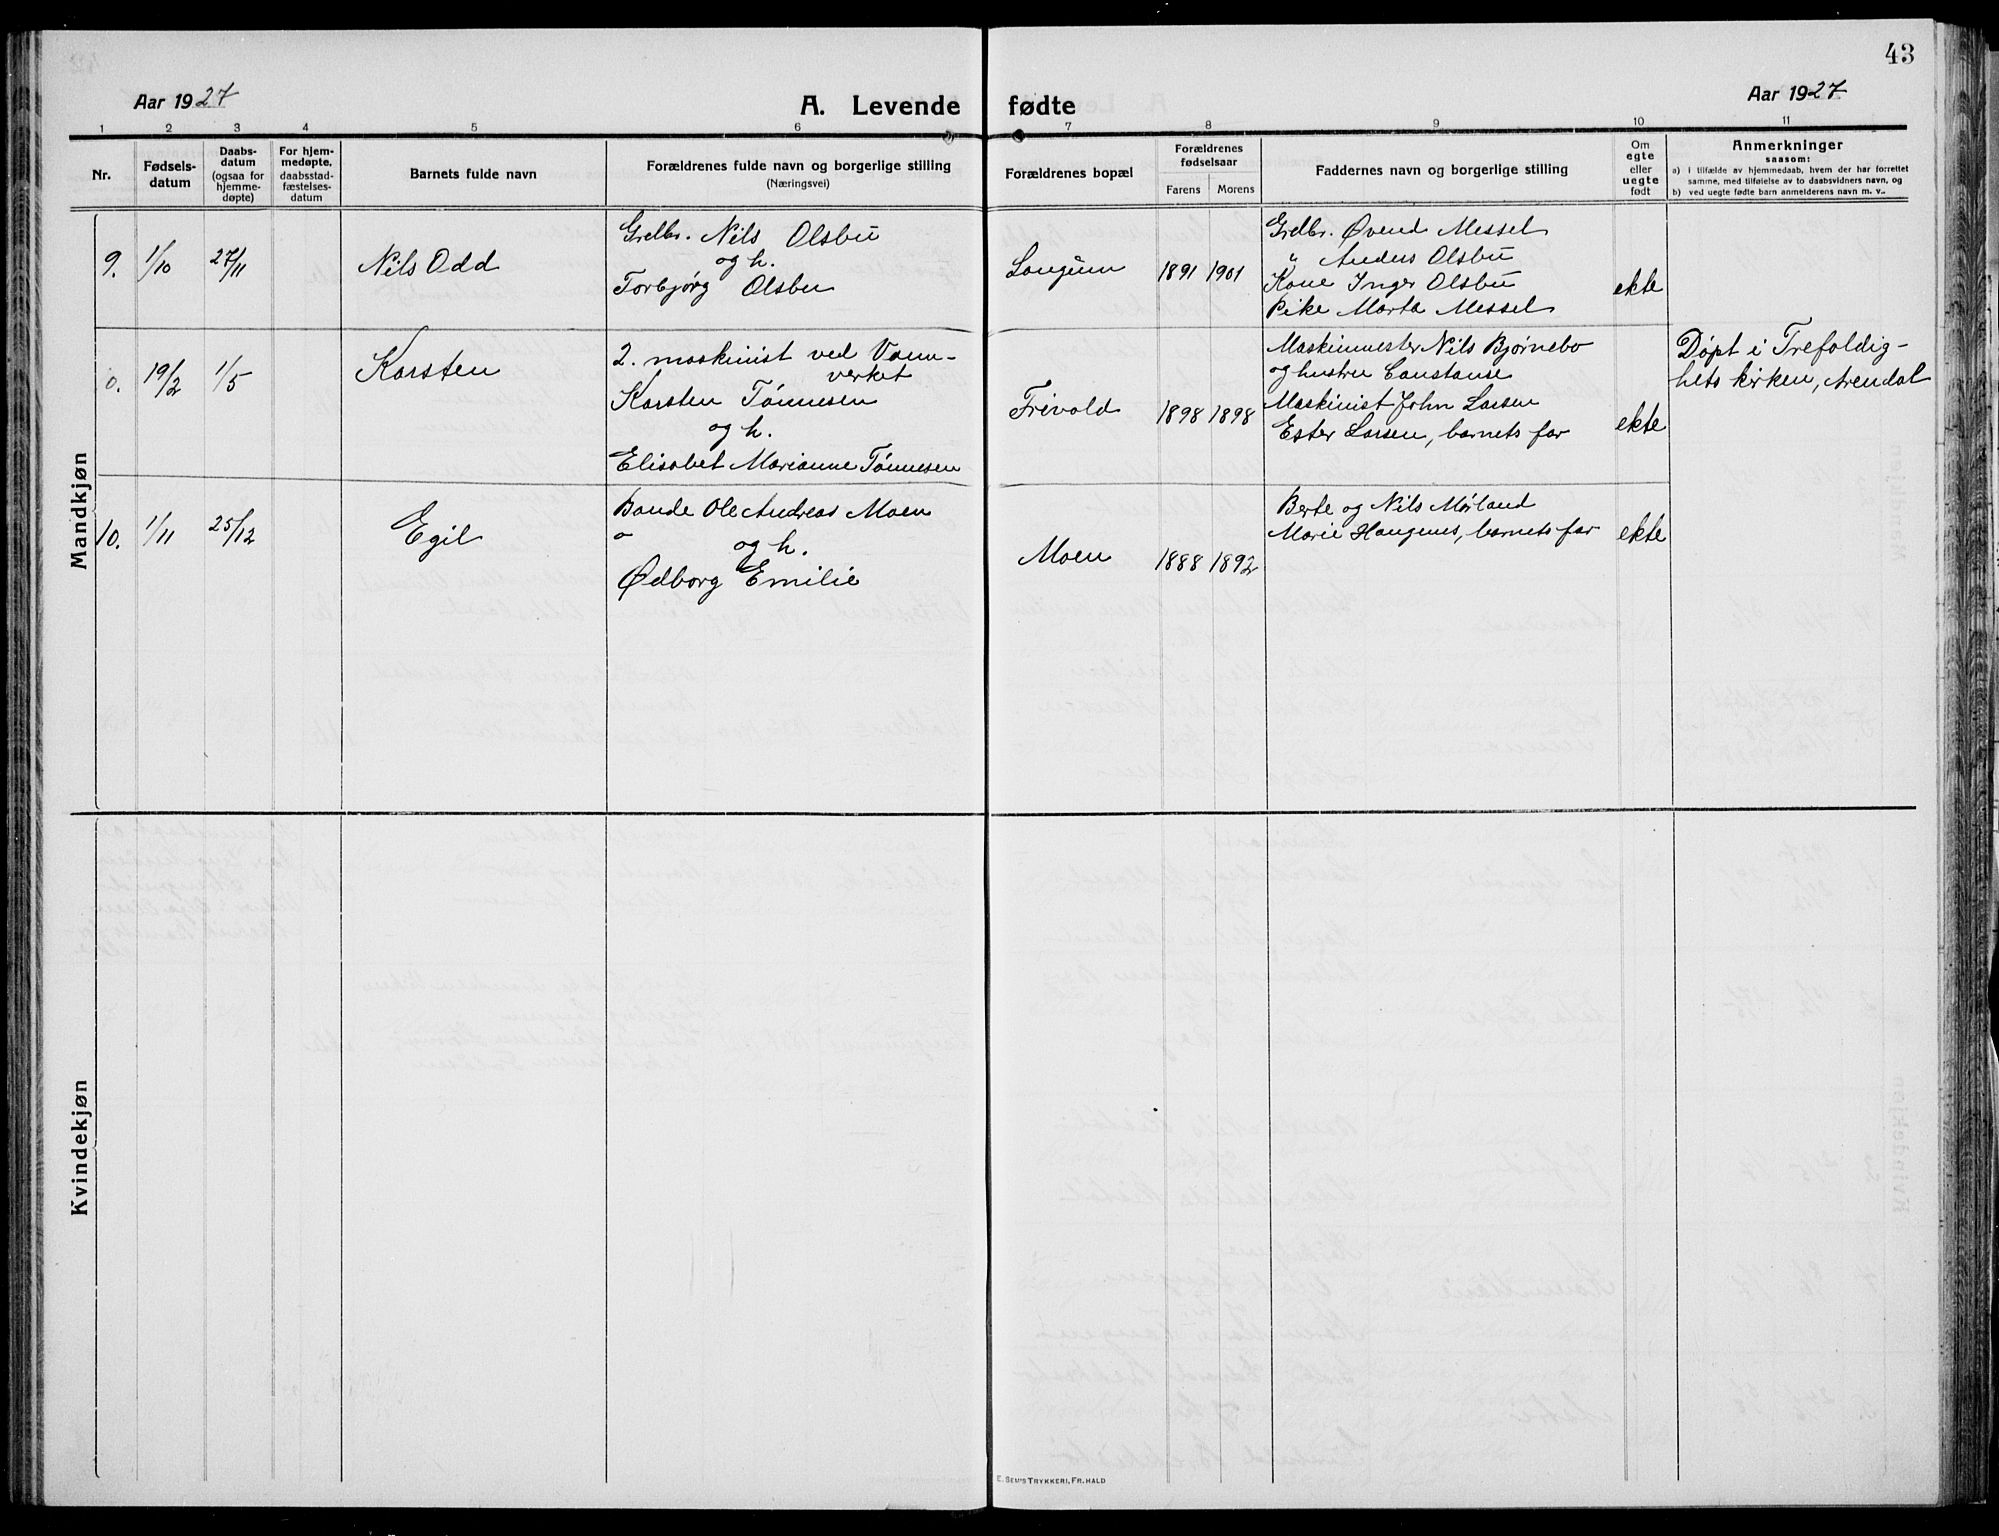 43
Aar 1927
A. Levende fødte
Aar 1927
1 2 3 4 5 6 7 8 9 10 11
Nr.
Fødsels-
datum
Daabs-
datum
(ogsaa for
hjemme-
døpte)
For hjem-
medøpte,
daabsstad-
fæstelses-
datum
Barnets fulde navn
Forældrenes fulde navn og borgerlige stilling
(Næringsvei)
Forældrenes bopæl
Forældrenes
fødselsaar
Farens Morens
Faddernes navn og borgerlige stilling
Om
egte
eller
uegte
født
Anmerkninger
saasom:
a) i tilfælde av hjemmedaab, hvem der har forrettet
samme, med tilføielse av to daabsvidners navn, og
b) ved uegte fødte barn anmelderens navn m. v..
Mandkjøn
9. 1/10 27/11 Nils Odd
Grdbr. Nils Olsbu
og h.
Torbjørg Olsbu
Longum 1891 1901
Grdbr. Øvend Messel
" Anders Olsbu
Kone Inger Olsbu
Pike Marta Messel
ekte
0. 19/2 1/5 Karsten
2. maskinist ved Vann-
verket
Karsten Tønnesen
og h.
Elisabet Marianne Tønnesen
Frivold 1898 1898
Maskinmester Nils Bjørnebo
og hustru Constanse
Maskinist John Larsen
Ester Larsen, barnets far
ekte
Døpt i Trefoldig-
hets kirken, Arendal
10. 1/11 25/12 Egil
Bonde Ole Andreas Moen
og h.
Ødborg Emilie
Moen 1888 1892
Berte og Nils Mørland
Marie Haugenes, barnets far
ekte
Kvindekjøn
E. Sem's Trykkeri, Fr.hald